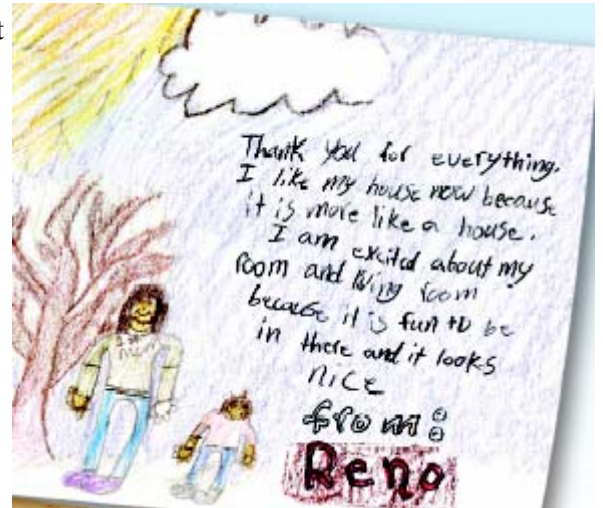 t
Thank you for everything.
I like my house now because
it is more like a house.
I am excited about my
room and living room
because it is fun to be
in there and it looks
nice
from:
Reno